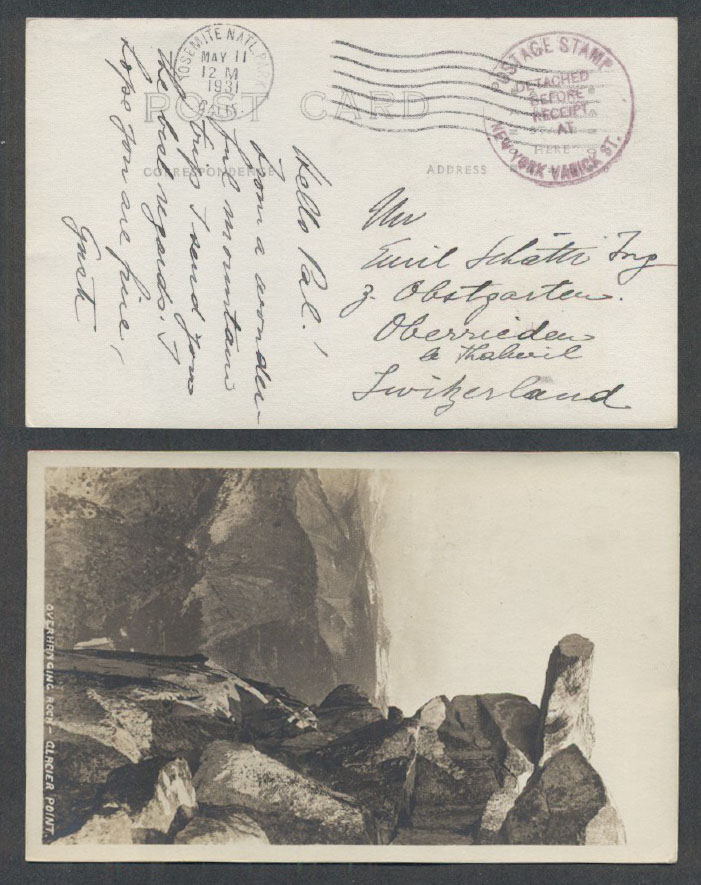 YOSEMITE NATL. PARK
MAY 11
12 M
1931
CALIF.
POSTAGE STAMP
DETACHED
BEFORE
RECEIPT
AT
NEW YORK VARICK ST.
POST CARD
CORRESPONDENCE
ADDRESS
HERE
Hello Pal!
From a wonder
ful mountain
trip I send you
the best regards. I
hope you are fine,
Mr
Emil Schätti Ing
z. Obstgarten.
Oberrieden
Thalwil
Switzerland
OVERHANGING ROCK - GLACIER POINT.